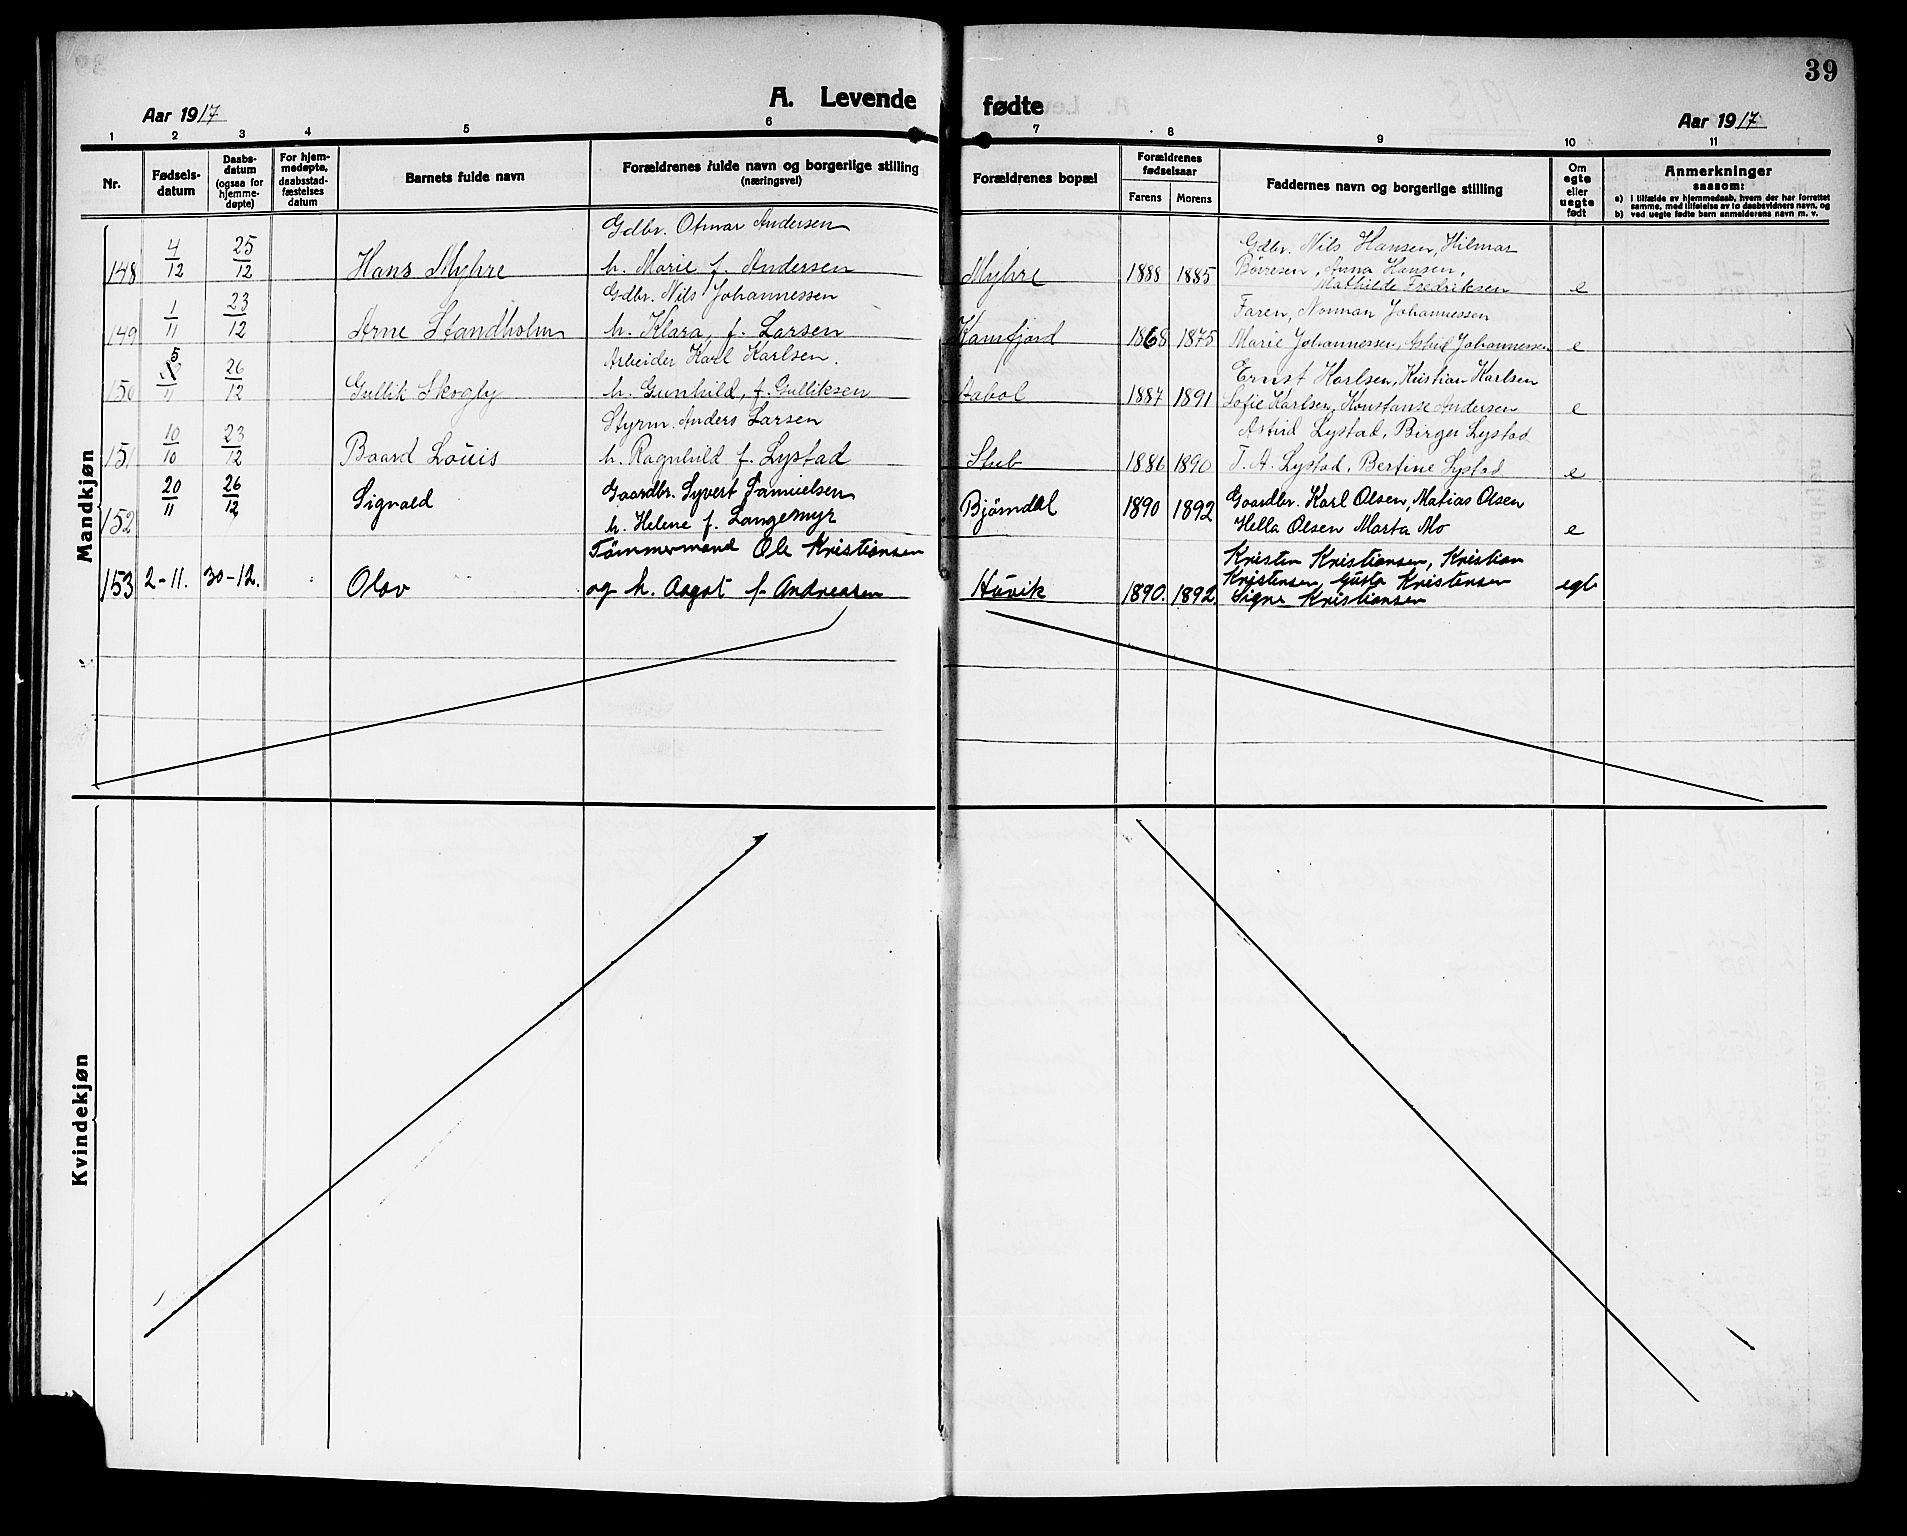 39
Aar 1917
A. Levende fødte
Aar 1917
1 2 3 4 5 6 7 8 9 10 11
Nr.
Fødsels-
datum
Daabs-
datum
(ogsaa for
hjemme-
døpte)
For hjem-
medøpte,
daabsstad-
fæstelses
datum
Barnets fulde navn
Forældrenes fulde navn og borgerlige stilling
(næringsvei)
Forældrenes bopæl
Forældrenes
fødselsaar
Farens Morens
Faddernes navn og borgerlige stilling
Om
egte
eller
uegte
født
Anmerkninger
saasom:
a) i tilfælde av hjemmedaab, hvem der har forrettet
samme, med tilføielse av to daabsvidners navn, og
b) ved uegte fødte barn anmelderens navn m. v.
Mandkjøn
Gdbr. Otmar Andersen
148 4/12 25/12 Hans Myhre h. Marie f. Andersen Myhre 1888 1885 e
Gdbr. Nils Hansen, Hilmar
Børresen, Anna Hansen,
Mathilde Fredriksen
Gdbr. Nils Johannessen
149 1/11 23/12 Arne Standholm h. Klara, f. Larsen Kamfjord 1868 1875 e
Faren, Norman Johannessen
Marie Johannessen, Astrid Johannessen
Arbeider Karl Karlsen.
150 5/11 26/12 Gullik Skogly h. Gunhild, f. Gulliksen Aabol 1887 1891 e
Ernst Karlsen, Kristian Karlsen
Sofie Karlsen, Konstanse Andersen
Styrm. Anders Larsen
151 10/10 23/12 Baard Louis h. Ragnhild f. Lystad Stub 1886 1890 e
Astrid Lystad, Birger Lystad
T. A. Lystad, Bertine Lystad
Gaardbr. Syvert Samuelsen
152 20/11 26/12 Sigvald h. Helene f. Langemyr Bjørndal 1890 1892 e
Gaardbr. Karl Olsen, Matias Olsen
Hella Olsen Marta Mo
Tømmermand Ole Kristiansen
153 2-11. 30-12. Olav og h. Aagot f. Andreasen Huvik 1890. 1892. egte
Kristen Kristiansen, Kristian
Kristensen, Gusta Kristensen
Signe Kristiansen
Kvindekjøn